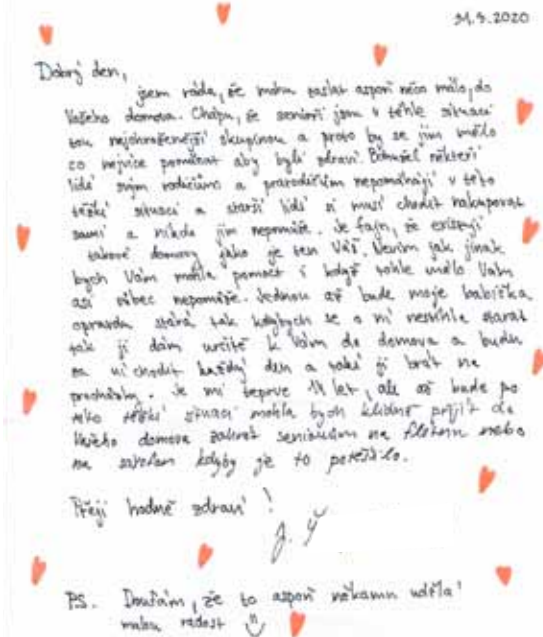 31.3.2020
Dobrý den,
jsem ráda, že mohu zaslat aspoň něco málo, do
Vašeho domova. Chápu, že senioři jsou v téhle situaci
tou nejohroženější skupinou a proto by se jim mělo
co nejvíce pomáhat aby byli zdraví. Bohužel někteří
lidé svým rodičům a prarodičům nepomáhají v této
těžké situaci a starší lidé si musí chodit nakupovat
sami a nikdo jim nepomůže. Je fajn, že existují
takové domovy jako je ten Váš. Nevím jak jinak
bych Vám mohla pomoct i když tohle mělo Vám
asi vůbec nepomůže. Jednou až bude moje babička
opravdu stará tak kdybych se o ni nestíhla starat
tak ji dám určitě k Vám do domova a budu
za ní chodit každý den a také ji brát na
procházky. Je mi teprve 14 let, ale až bude po
této těžké situaci mohla bych klidně přijít do
Vašeho domova zahrát seniorům na flétnu nebo
na saxofon kdyby je to potěšilo.
Přeji hodně zdraví!
PS. Doufám, že to aspoň někomu udělá
malou radost